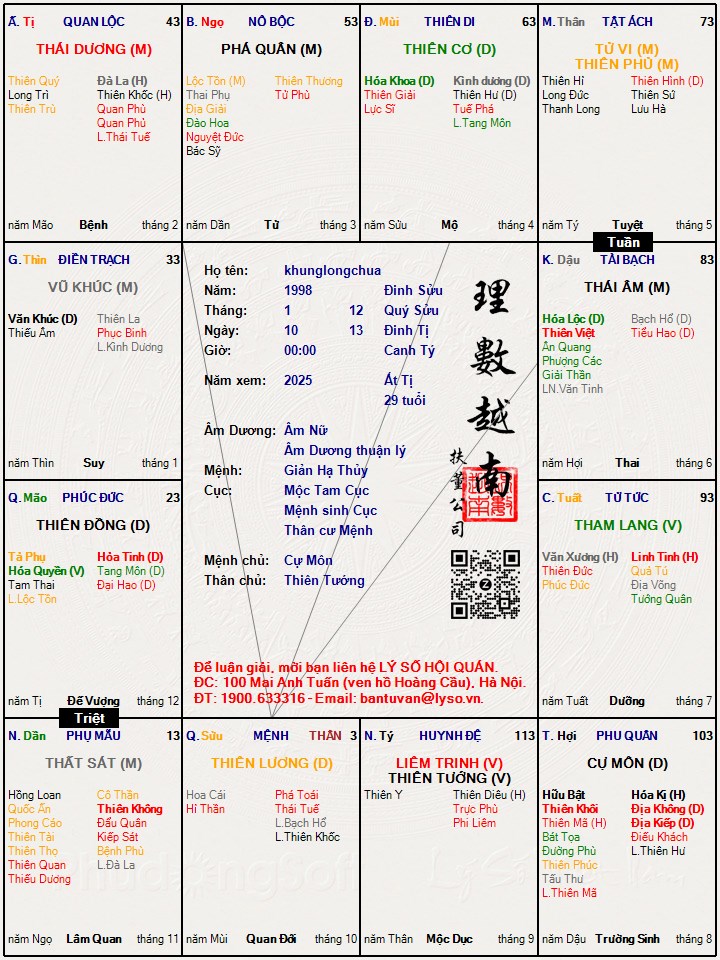 Ấ. Tị QUAN LỘC 43
THÁI DƯƠNG (M)
Thiên Quý Đà La (H)
Long Trì Thiên Khốc (H)
Thiên Trù Quan Phủ
Quan Phù
L.Thái Tuế
năm Mão Bệnh tháng 2
B. Ngọ NÔ BỘC 53
PHÁ QUÂN (M)
Lộc Tồn (M) Thiên Thương
Thai Phụ Tử Phù
Địa Giải
Đào Hoa
Nguyệt Đức
Bác Sỹ
năm Dần Tử tháng 3
Đ. Mùi THIÊN DI 63
THIÊN CƠ (D)
Hóa Khoa (D) Kình dương (D)
Thiên Giải Thiên Hư (D)
Lực Sĩ Tuế Phá
L.Tang Môn
năm Sửu Mộ tháng 4
M. Thân TẬT ÁCH 73
TỬ VI (M)
THIÊN PHỦ (M)
Thiên Hỉ Thiên Hình (D)
Long Đức Thiên Sứ
Thanh Long Lưu Hà
năm Tý Tuyệt tháng 5
Tuần
G. Thìn ĐIỀN TRẠCH 33
VŨ KHÚC (M)
Văn Khúc (D) Thiên La
Thiếu Âm Phục Binh
L.Kình Dương
năm Thìn Suy tháng 1
Họ tên: khunglongchua
Năm: 1998 Đinh Sửu
Tháng: 1 12 Quý Sửu
Ngày: 10 13 Đinh Tị
Giờ: 00:00 Canh Tý
Năm xem: 2025 Ất Tị
29 tuổi
Âm Dương: Âm Nữ
Âm Dương thuận lý
Mệnh: Giản Hạ Thủy
Cục: Mộc Tam Cục
Mệnh sinh Cục
Thân cư Mệnh
Mệnh chủ: Cự Môn
Thân chủ: Thiên Tướng
理數越南
扶董公司
Để luận giải, mời bạn liên hệ LÝ SỐ HỘI QUÁN.
ĐC: 100 Mai Anh Tuấn (ven hồ Hoàng Cầu), Hà Nội.
ĐT: 1900.633316 - Email: bantuvan@lyso.vn.
K. Dậu TÀI BẠCH 83
THÁI ÂM (M)
Hóa Lộc (D) Bạch Hổ (D)
Thiên Việt Tiểu Hao (D)
Ân Quang
Phượng Các
Giải Thần
LN.Văn Tinh
năm Hợi Thai tháng 6
Q. Mão PHÚC ĐỨC 23
THIÊN ĐỒNG (D)
Tả Phụ Hỏa Tinh (D)
Hóa Quyền (V) Tang Môn (D)
Tam Thai Đại Hao (D)
L.Lộc Tồn
năm Tị Đế Vượng tháng 12
Triệt
C. Tuất TỬ TỨC 93
THAM LANG (V)
Văn Xương (H) Linh Tinh (H)
Thiên Đức Quả Tú
Phúc Đức Địa Võng
Tướng Quân
năm Tuất Dưỡng tháng 7
N. Dần PHỤ MẪU 13
THẤT SÁT (M)
Hồng Loan Cô Thần
Quốc Ấn Thiên Không
Phong Cáo Đẩu Quân
Thiên Tài Kiếp Sát
Thiên Thọ Bệnh Phù
Thiên Quan L.Đà La
Thiếu Dương
năm Ngọ Lâm Quan tháng 11
Q. Sửu MỆNH THÂN 3
THIÊN LƯƠNG (D)
Hoa Cái Phá Toái
Hỉ Thần Thái Tuế
L.Bạch Hổ
L.Thiên Khốc
năm Mùi Quan Đới tháng 10
N. Tý HUYNH ĐỆ 113
LIÊM TRINH (V)
THIÊN TƯỚNG (V)
Thiên Y Thiên Diêu (H)
Trực Phù
Phi Liêm
năm Thân Mộc Dục tháng 9
T. Hợi PHU QUÂN 103
CỰ MÔN (D)
Hữu Bật Hóa Kị (H)
Thiên Khôi Địa Không (D)
Thiên Mã (H) Địa Kiếp (D)
Bát Tọa Điếu Khách
Đường Phù L.Thiên Hư
Thiên Phúc
Tấu Thư
L.Thiên Mã
năm Dậu Trường Sinh tháng 8